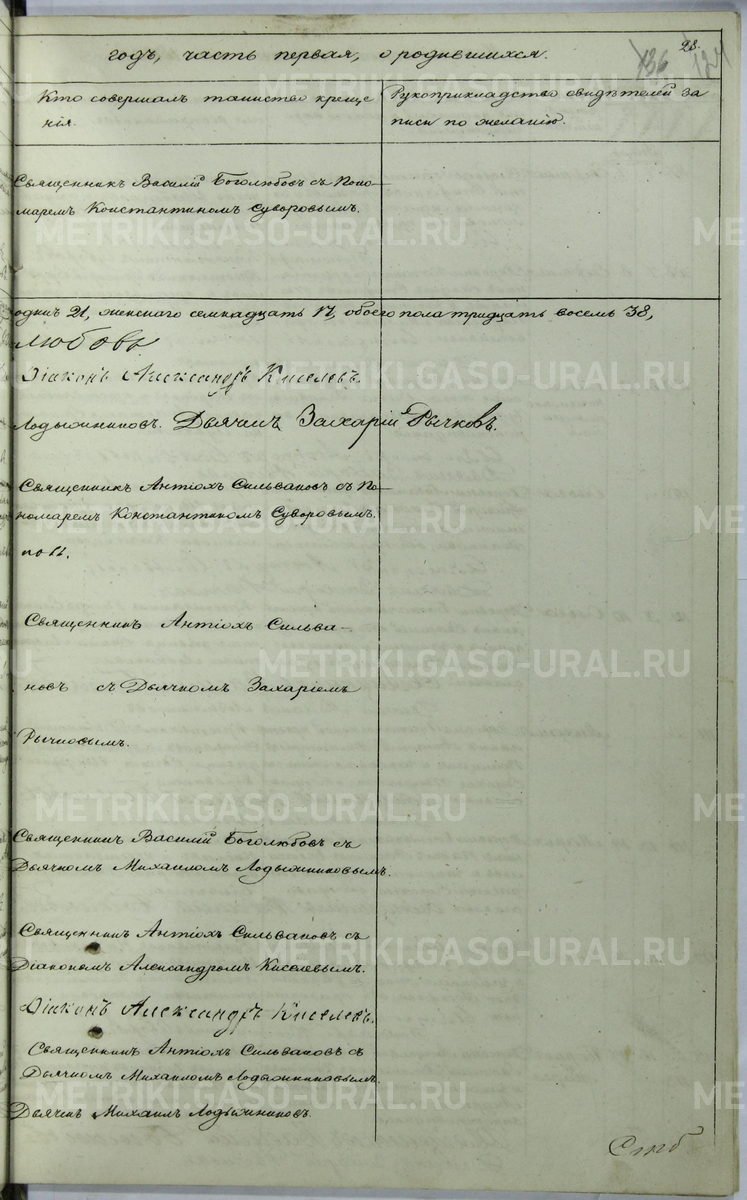 28.
годъ, часть первая, о родившихся. 136 124
Кто совершалъ таинство креще
нія.
Рукоприкладство свидѣтелей за
писи по желанію.
Священникъ Василій Боголюбовъ съ Поно-
маремъ Константиномъ Суворовымъ.
одинъ 21, женскаго семнадцать 17, обоего пола тридцать восемь 38,
любовъ
Діаконъ Александръ Киселевъ.
Лодыжниковъ. Дьячекъ Захарій Рычковъ.
Священникъ Антіохъ Сильвановъ съ По-
номаремъ Константиномъ Суворовымъ.
по 11.
Священникъ Антіохъ Сильва-
новъ съ Дьячкомъ Захаріемъ
Рычковымъ.
Священникъ Василій Боголюбовъ съ
Дьячкомъ Михаиломъ Лодыжниковымъ.
Священникъ Антіохъ Сильвановъ съ
Діакономъ Александромъ Киселевымъ.
Діаконъ Александръ Киселевъ.
Священникъ Антіохъ Сильвановъ съ
Дьячкомъ Михаиломъ Лодыжниковымъ.
Дьячекъ Михаилъ Лодыжниковъ.
METRIKI.GASO-URAL.RU